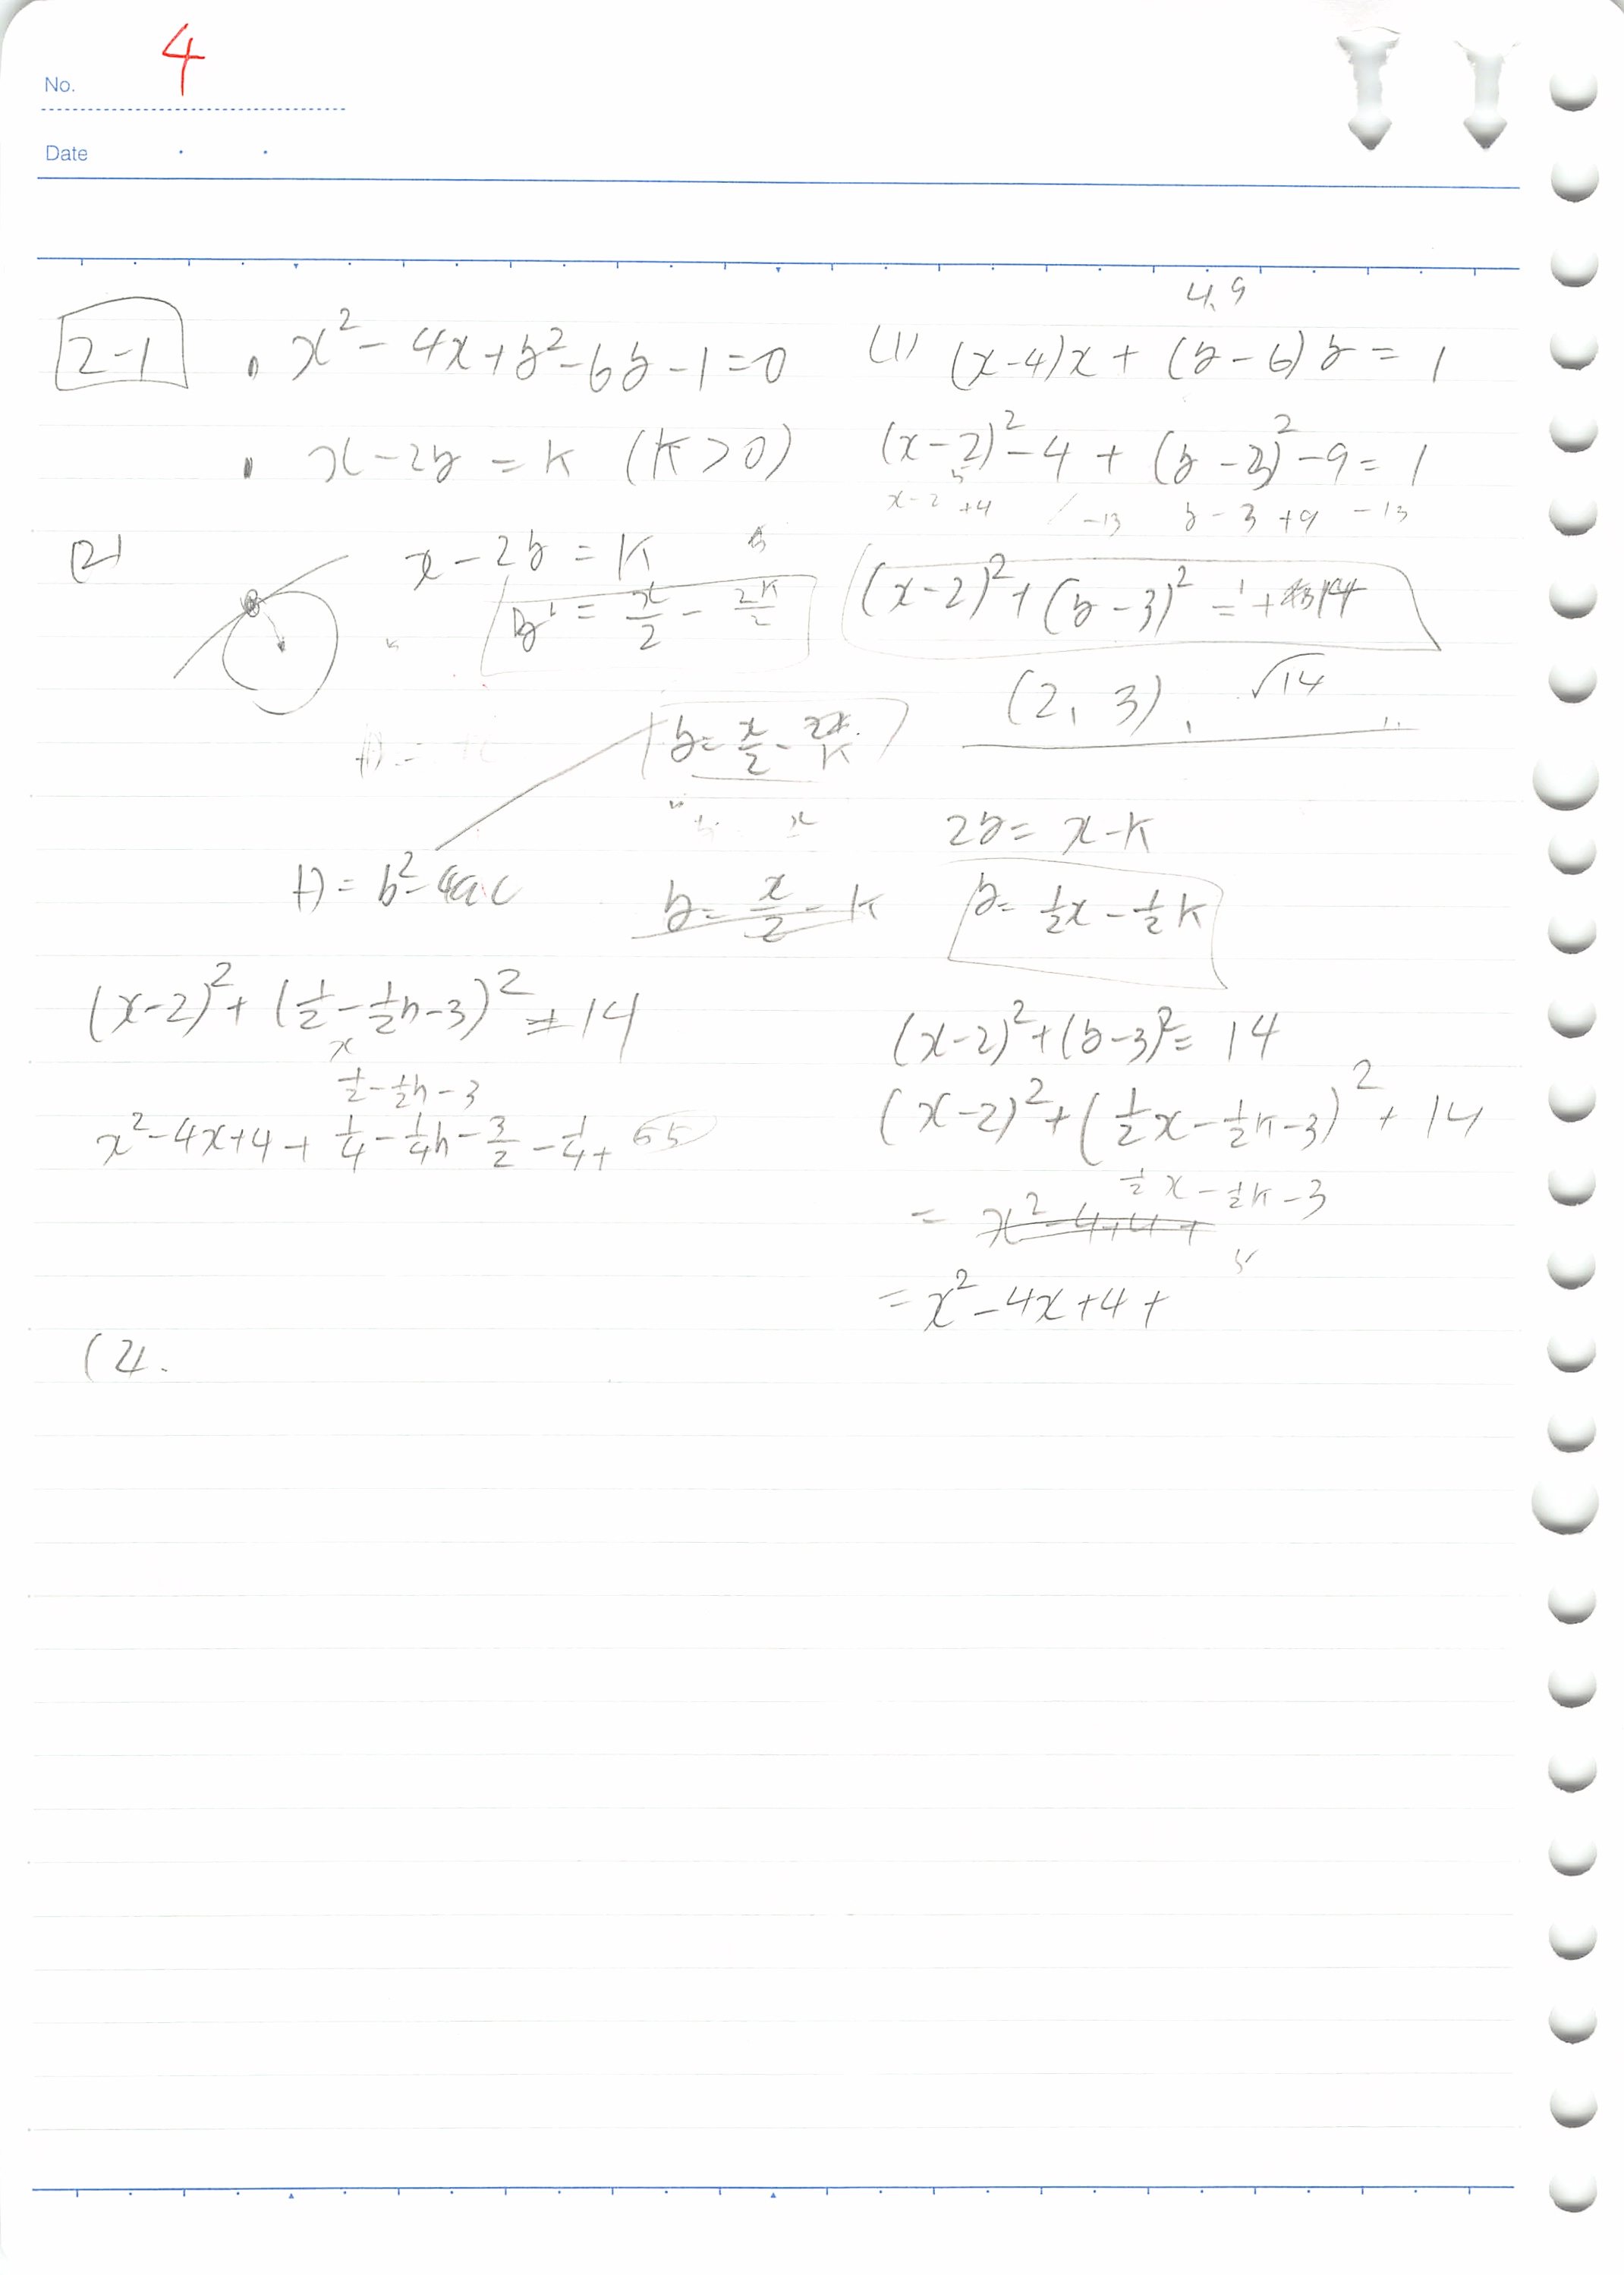 No. 4
Date
2-1
x² - 4x + y² - 6y - 1 = 0
x - 2y = k (k > 0)
4, 9
(1) (x-4)x + (y-6)y = 1
(x-2)² - 4 + (y-3)² - 9 = 1
x-2 +4 / -13 y-3 +9 -13
(x-2)² + (y-3)² = 1 + 13 14
(2, 3), √14
(2)
x - 2y = k
y = x/2 - 2k/2
y = x/2 - k
D = b² - 4ac
y = x/2 - k
2y = x - k
y = 1/2 x - 1/2 k
(x-2)² + (1/2 - 1/2 k - 3)² = 14
x
1/2 - 1/2 k - 3
x² - 4x + 4 + 1/4 - 1/4 k - 3/2 - 1/4 +
(x-2)² + (y-3)² = 14
(x-2)² + (1/2 x - 1/2 k - 3)² + 14
1/2 x - 1/2 k - 3
= x² - 4 + 4 +
= x² - 4x + 4 +
(4.